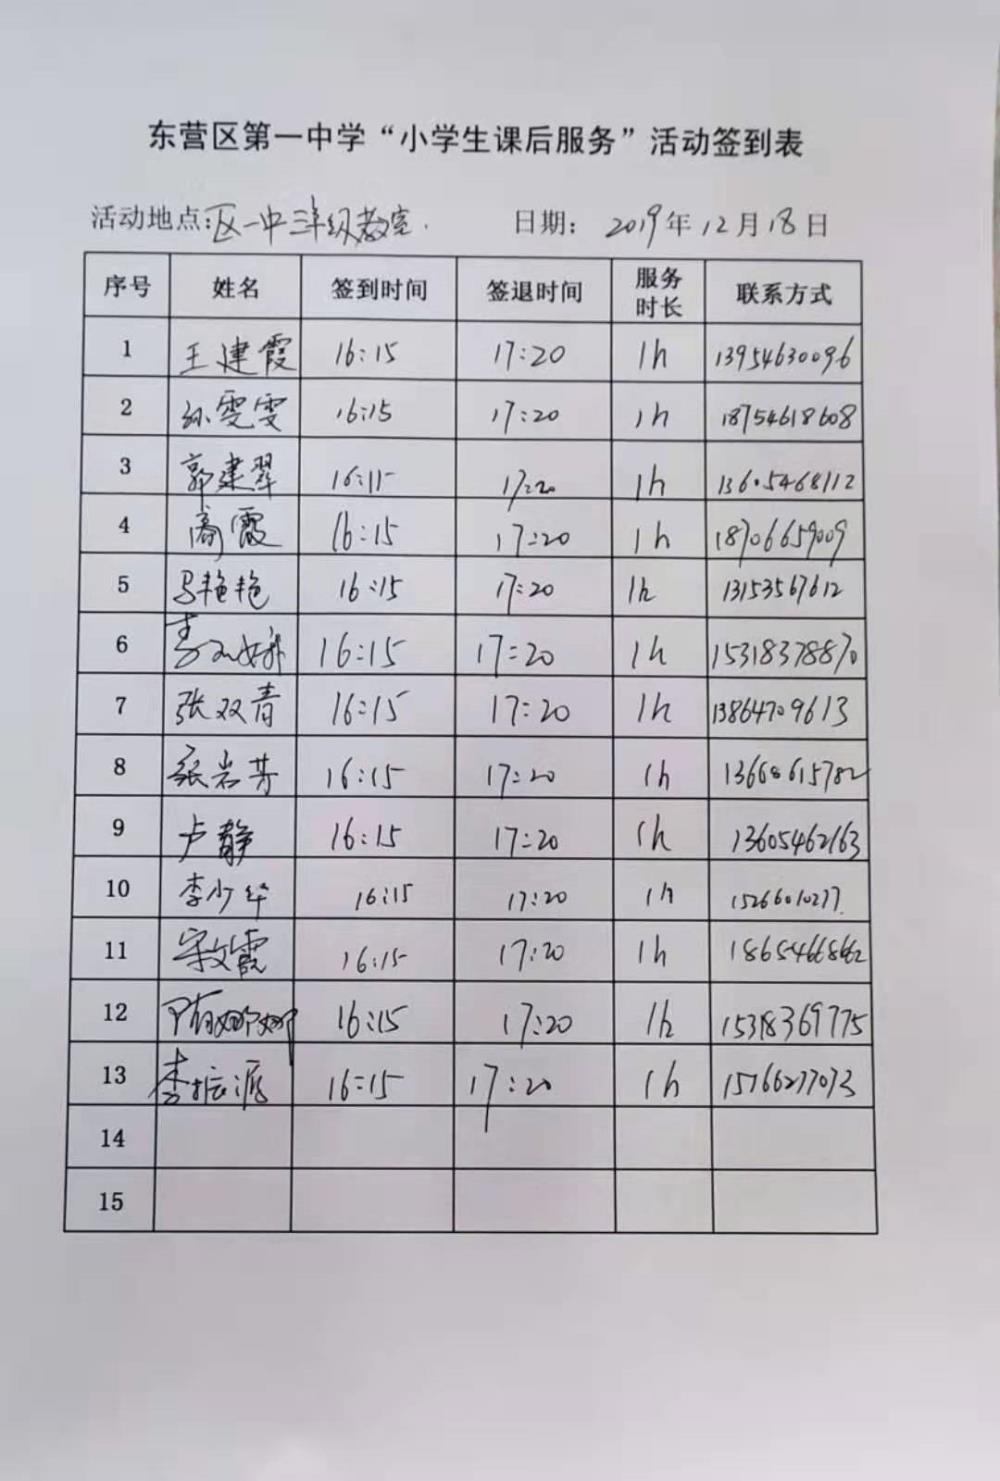 东营区第一中学“小学生课后服务”活动签到表
活动地点:区一中三年级教室. 日期: 2019年12月18日
序号 姓名 签到时间 签退时间 服务时长 联系方式
1 王建霞 16:15 17:20 1h 13954630096
2 孙雯雯 16:15 17:20 1h 18754618608
3 郭建翠 16:15 17:20 1h 13605468112
4 商霞 16:15 17:20 1h 18706659009
5 马艳艳 16:15 17:20 1h 13153567612
6 16:15 17:20 1h 15318378870
7 张双青 16:15 17:20 1h 13864709613
8 张岩芳 16:15 17:20 1h 13668615782
9 卢静 16:15 17:20 1h 13605462163
10 李少华 16:15 17:20 1h 15266010277
11 宋文霞 16:15 17:20 1h
12 16:15 17:20 1h 15318369775
13 李振源 16:15 17:20 1h 15766277073
14
15